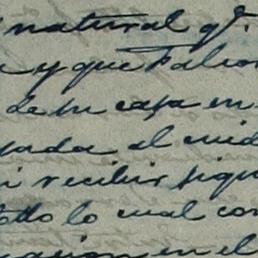 natural qe.
a y que Falcon
de su casa en
gada al cuid
i recibir sigu
todo lo cual con
en el